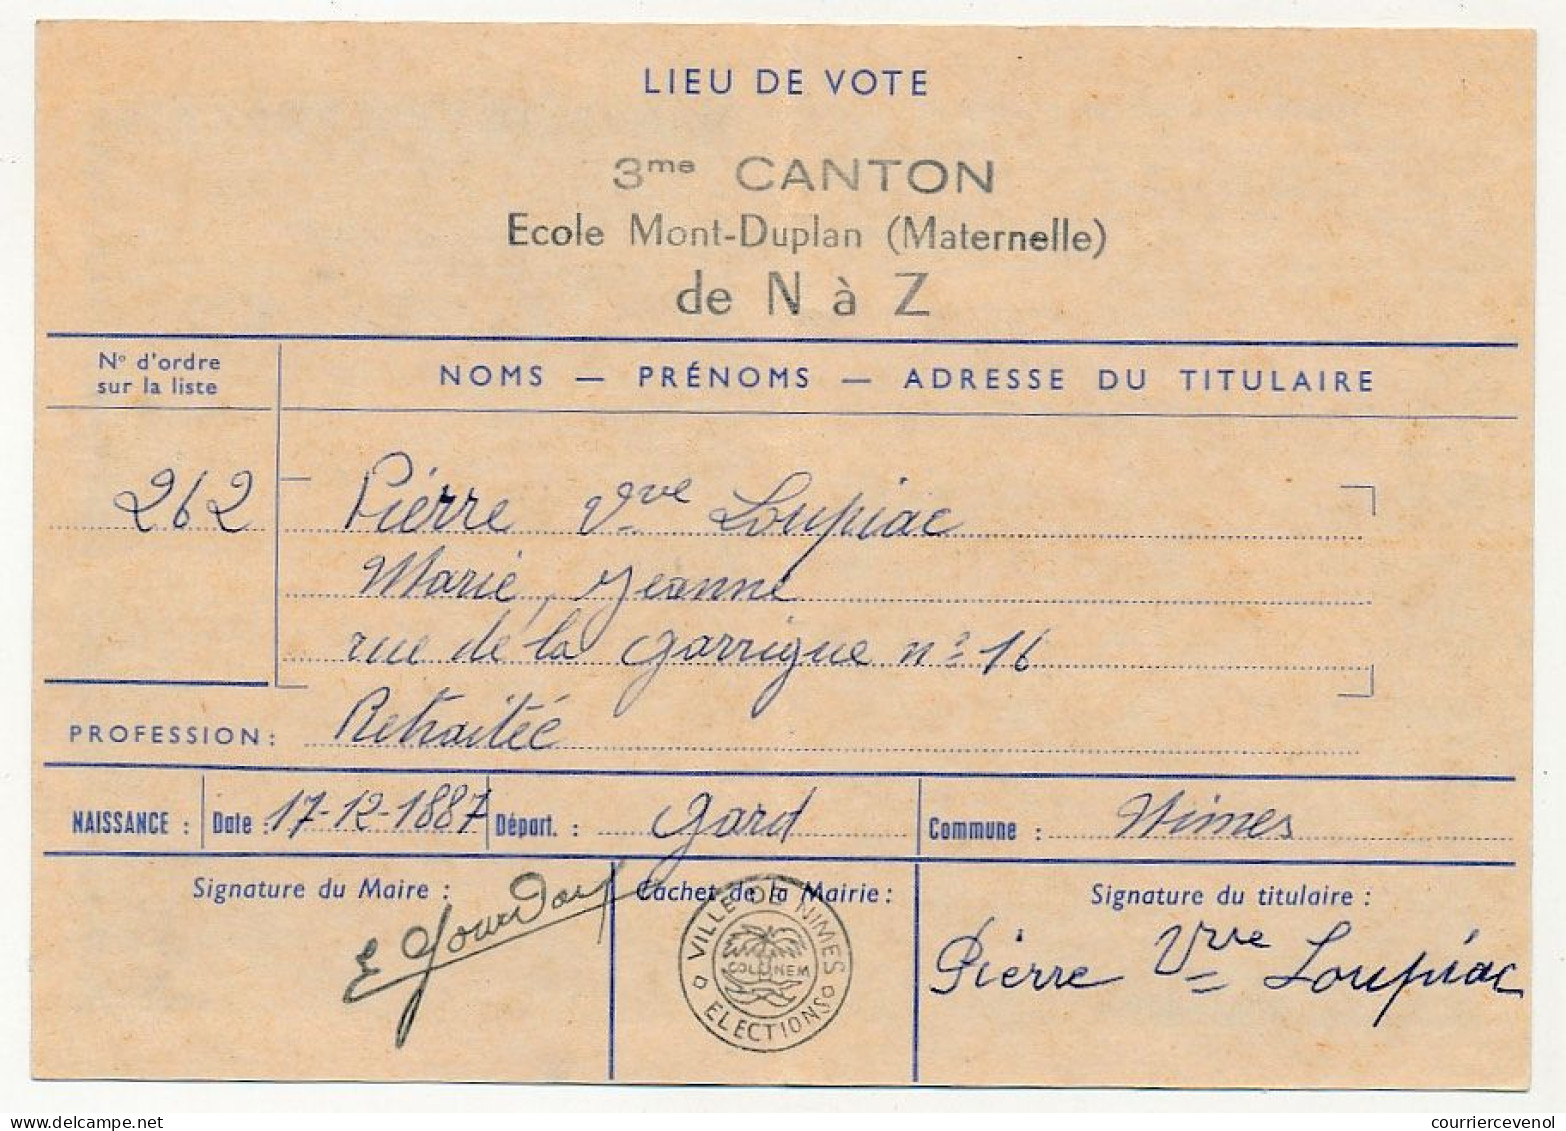 LIEU DE VOTE
3me CANTON
Ecole Mont-Duplan (Maternelle)
de N à Z
N° d'ordre
sur la liste
NOMS — PRÉNOMS — ADRESSE DU TITULAIRE
262
Pierre Vve Loupiac
Marie, Jeanne
rue de la garrigue n° 16
PROFESSION : Retraitée
NAISSANCE : Date : 17-12-1887 Départ. : Gard Commune : Nimes
Signature du Maire : Cachet de la Mairie : Signature du titulaire :
E Jourdan
VILLE DE NIMES
COL NEM
ELECTIONS
Pierre Vve Loupiac
courriercevenol
www.delcampe.net